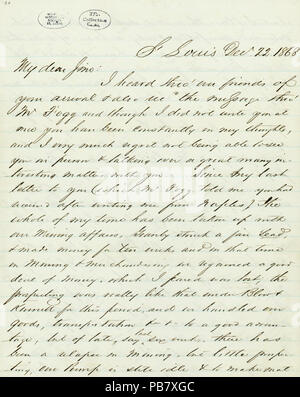 St Louis Dec 22 1868
My dear Jino:
I heard thro' our friends of
your arrival & also rec the message thro'
Mr Fogg and though I did not write you at
once you have been constantly in my thoughts,
and I very much regret not being able to see
you in person & talking over a great many in-
teresting matters with you. Since my last
letter to you (which Mr Fogg told me you had
received after writing me from Naples) the
whole of my time has been taken up with
our Mining affairs. Granby struck a fin lead
& made money for ten weeks and in that time
in Mining & merchandising we regained a good
deal of money, which I feared was lost, the
prospecting was really like that under Blow &
Kennett for this period, and we handled our
goods, transportation & to a good advan-
tage, but of late, say, six weeks, there has
been a relapse in Mining, but little prospec-
ting, our Pump is still idle & to make mat
alamy
PB7XGC